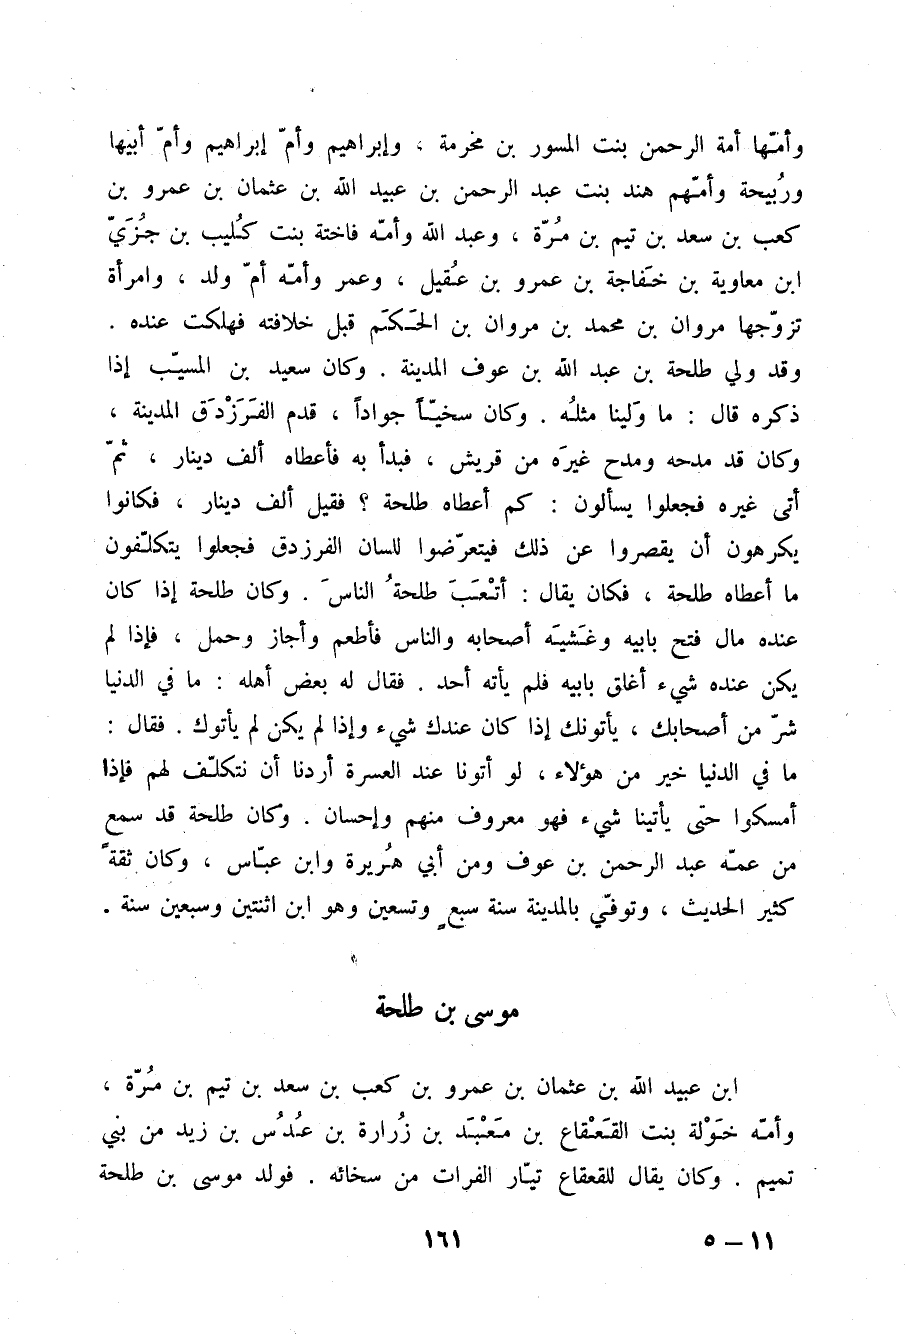 وأمّها أمة الرحمن بنت المسور بن مخرمة ، وإبراهيم وأمّ إبراهيم وأمّ أبيها
ورُبيحة وأمّهم هند بنت عبد الرحمن بن عبيد الله بن عثمان بن عمرو بن
كعب بن سعد بن تيم بن مُرّة ، وعبد الله وأمّه فاختة بنت كُليب بن جُزَيّ
ابن معاوية بن خَفاجة بن عمرو بن عُقيل ، وعمر وأمّه أمّ ولد ، وامرأة
تزوّجها مروان بن محمد بن مروان بن الحَكَم قبل خلافته فهلكت عنده .
وقد ولي طلحة بن عبد الله بن عوف المدينة . وكان سعيد بن المسيّب إذا
ذكره قال : ما وَلينا مثلُه . وكان سخيّاً جواداً ، قدم الفَرَزْدَق المدينة ،
وكان قد مدحه ومدح غيرَه من قريش ، فبدأ به فأعطاه ألف دينار ، ثمّ
أتى غيره فجعلوا يسألون : كم أعطاه طلحة ؟ فقيل ألف دينار ، فكانوا
يكرهون أن يقصروا عن ذلك فيتعرّضوا للسان الفرزدق فجعلوا يتكلّفون
ما أعطاه طلحة ، فكان يقال : أتْعَبَ طلحةُ الناسَ . وكان طلحة إذا كان
عنده مال فتح بابيه وغَشيَه أصحابه والناس فأطعم وأجاز وحمل ، فإذا لم
يكن عنده شيء أغلق بابيه فلم يأته أحد . فقال له بعض أهله : ما في الدنيا
شرّ من أصحابك ، يأتونك إذا كان عندك شيء وإذا لم يكن لم يأتوك . فقال :
ما في الدنيا خير من هؤلاء ، لو أتونا عند العسرة أردنا أن نتكلّف لهم فإذا
أمسكوا حتّى يأتينا شيء فهو معروف منهم وإحسان . وكان طلحة قد سمع
من عمّه عبد الرحمن بن عوف ومن أبي هُريرة وابن عبّاس ، وكان ثقةً
كثير الحديث ، وتوفّي بالمدينة سنة سبعٍ وتسعين وهو ابن اثنتين وسبعين سنة .
موسى بن طلحة
ابن عبيد الله بن عثمان بن عمرو بن كعب بن سعد بن تيم بن مُرّة ،
وأمّه خَوْلة بنت القَعْقاع بن مَعْبَد بن زُرارة بن عُدُس بن زيد من بني
تميم . وكان يقال للقعقاع تيّار الفرات من سخائه . فولد موسى بن طلحة
١١ – ٥
١٦١